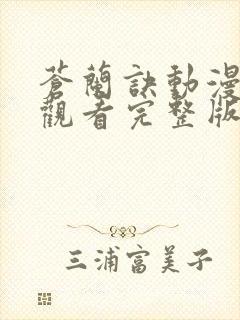 蒼蘭訣動漫
觀看完整版
三浦富美子